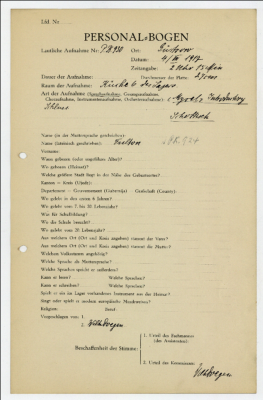 Lfd. Nr.
PERSONAL-BOGEN
Lautliche Aufnahme Nr.: PK 930 Ort: Güstrow
Datum: 4/VI 1917
Zeitangabe: 2 Uhr
Dauer der Aufnahme: Durchmesser der Platte: 27 cm
Raum der Aufnahme: Kirche d. des Lagers
Art der Aufnahme (Sprachaufnahme, Gesangsaufnahme,
Choraufnahme, Instrumentenaufnahme, Orchesteraufnahme):
Schottisch
Name (in der Muttersprache geschrieben):
Name (lateinisch geschrieben): Neilson
Vorname:
Wann geboren (oder ungefähres Alter)?
Wo geboren (Heimat)?
Welche größere Stadt liegt in der Nähe des Geburtsortes?
Kanton — Kreis (Ujedz):
Department — Gouvernement (Gubernija) — Grafschaft (County):
Wo gelebt in den ersten 6 Jahren?
Wo gelebt vom 7. bis 20. Lebensjahr?
Was für Schulbildung?
Wo die Schule besucht?
Wo gelebt vom 20. Lebensjahr?
Aus welchem Ort (Ort und Kreis angeben) stammt der Vater?
Aus welchem Ort (Ort und Kreis angeben) stammt die Mutter?
Welchem Volksstamm angehörig?
Welche Sprache als Muttersprache?
Welche Sprachen spricht er außerdem?
Kann er lesen? Welche Sprachen?
Kann er schreiben? Welche Sprachen?
Spielt er ein im Lager vorhandenes Instrument aus der Heimat?
Singt oder spielt er modern europäische Musikweisen?
Religion: Beruf:
Vorgeschlagen von: 1.
2.
Beschaffenheit der Stimme:
1. Urteil des Fachmannes
(des Assistenten):
2. Urteil des Kommissars: